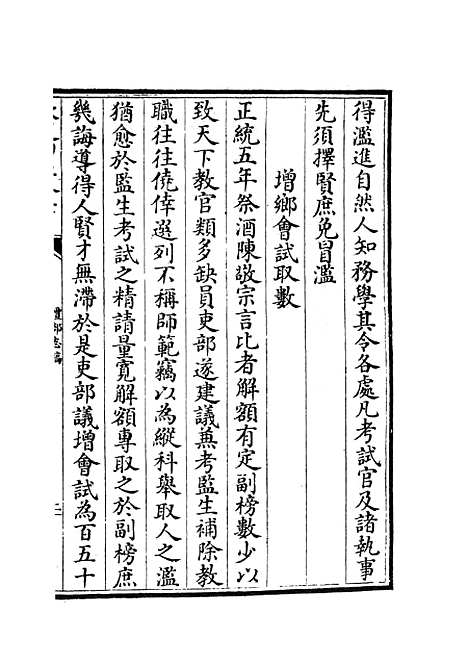 得濫進自然人知務學其令各處凡考試官及諸執事
先須擇賢庶免冒濫
增鄉會試取數
正統五年祭酒陳敬宗言比者解額有定副榜數少以
致天下教官類多缺員吏部遂建議兼考監生補除教
職往往僥倖選列不稱師範竊以為縱科舉取人之濫
猶愈於監生考試之精請量寬解額專取之於副榜庶
幾誨導得人賢才無滯於是吏部議增會試為百五十
禮部志稿